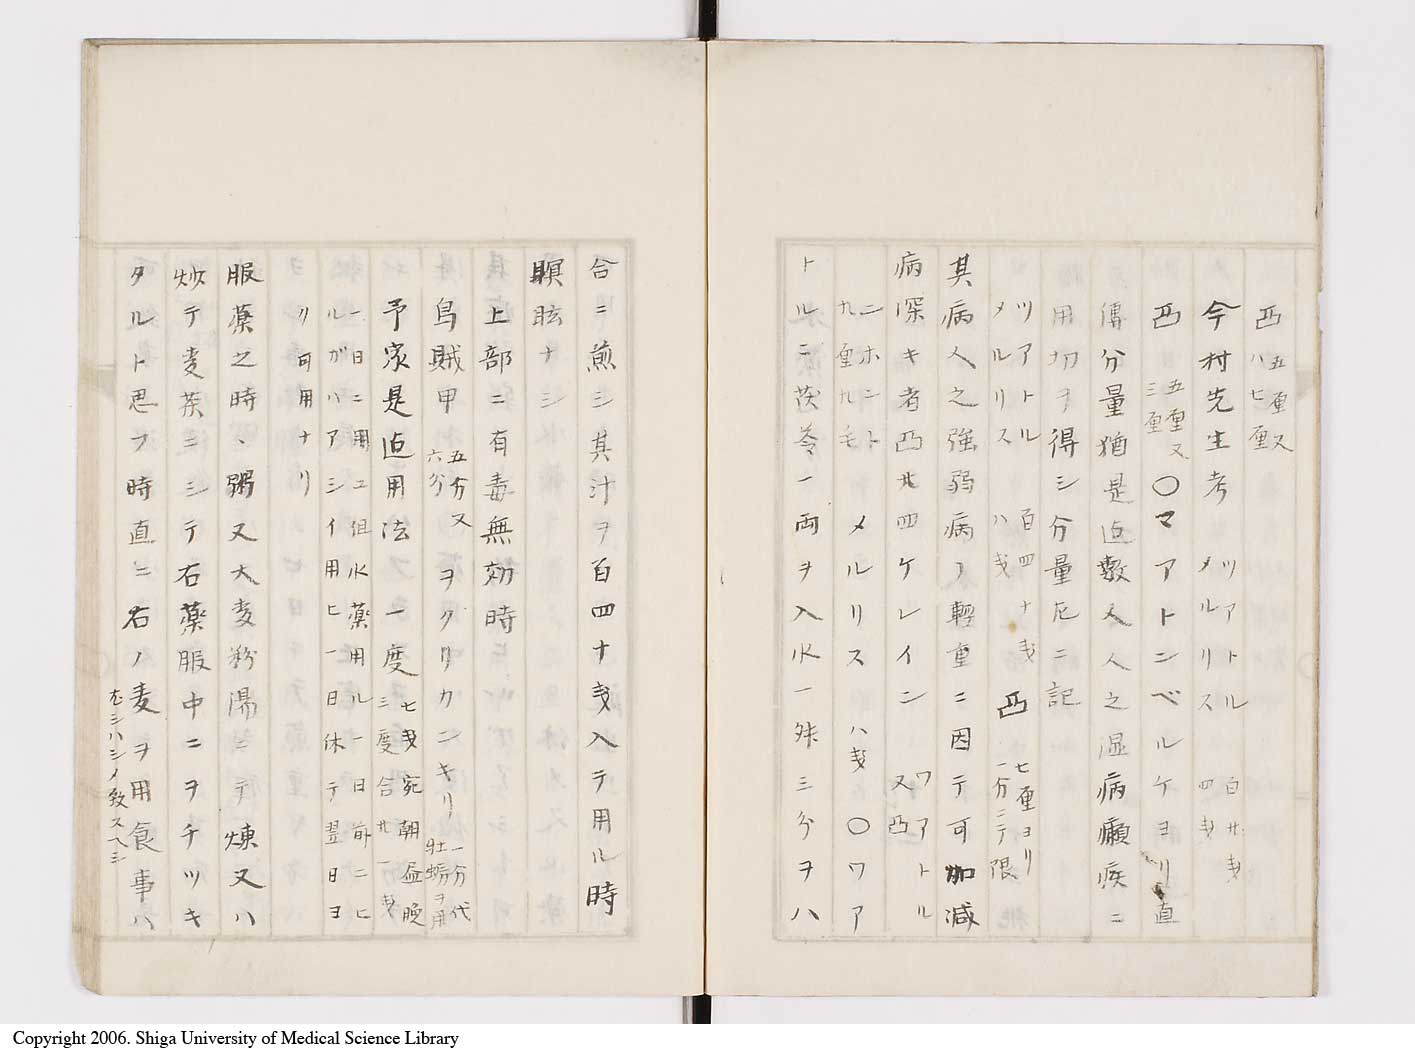 凸 五厘又
八七厘
今村先生考 ツアトル 百廿戔
メルリス 四戔
凸 五厘又
三厘 〇マアトンベルケヨリ直
傳分量猶是迄数人人之湿病癩疾ニ
用切ヲ得シ分量尼ニ記
ツアトル 百四十戔
メルリス 八戔 凸 七厘ヨリ
一分ニテ限
其病人之強弱病ノ輕重ニ因テ可加減
病深キ者凸 四ケレイン 又凸 ワアトル
ニホント
九厘九毛 メルリス 八戔 〇ワア
トルニ茯苓一両ヲ入水一舛三分ヲ八
合ニ煎シ其汁ヲ百四十戔入テ用ル時
瞑眩ナシ
上部ニ有毒無効時
烏賊甲 五分又
六分 ヲクリカンキリ 一分代
牡蛎ヲ用
予家是迄用法 一度 七戔宛朝昼晩
三度合廿一戔
一日ニ用ユ但水薬用ル一日前ニヒ
ルガハアシイ用ヒ一日休テ翌日ヨ
リ可用ナリ
服薬之時、粥又大麦粉湯ニテ煉又ハ
炒テ麦茶ニシテ右薬服中ニヲチツキ
タルト思フ時直ニ右ノ麦ヲ用食事ハ
尤シハシメ致スヘシ
Copyright 2006. Shiga University of Medical Science Library